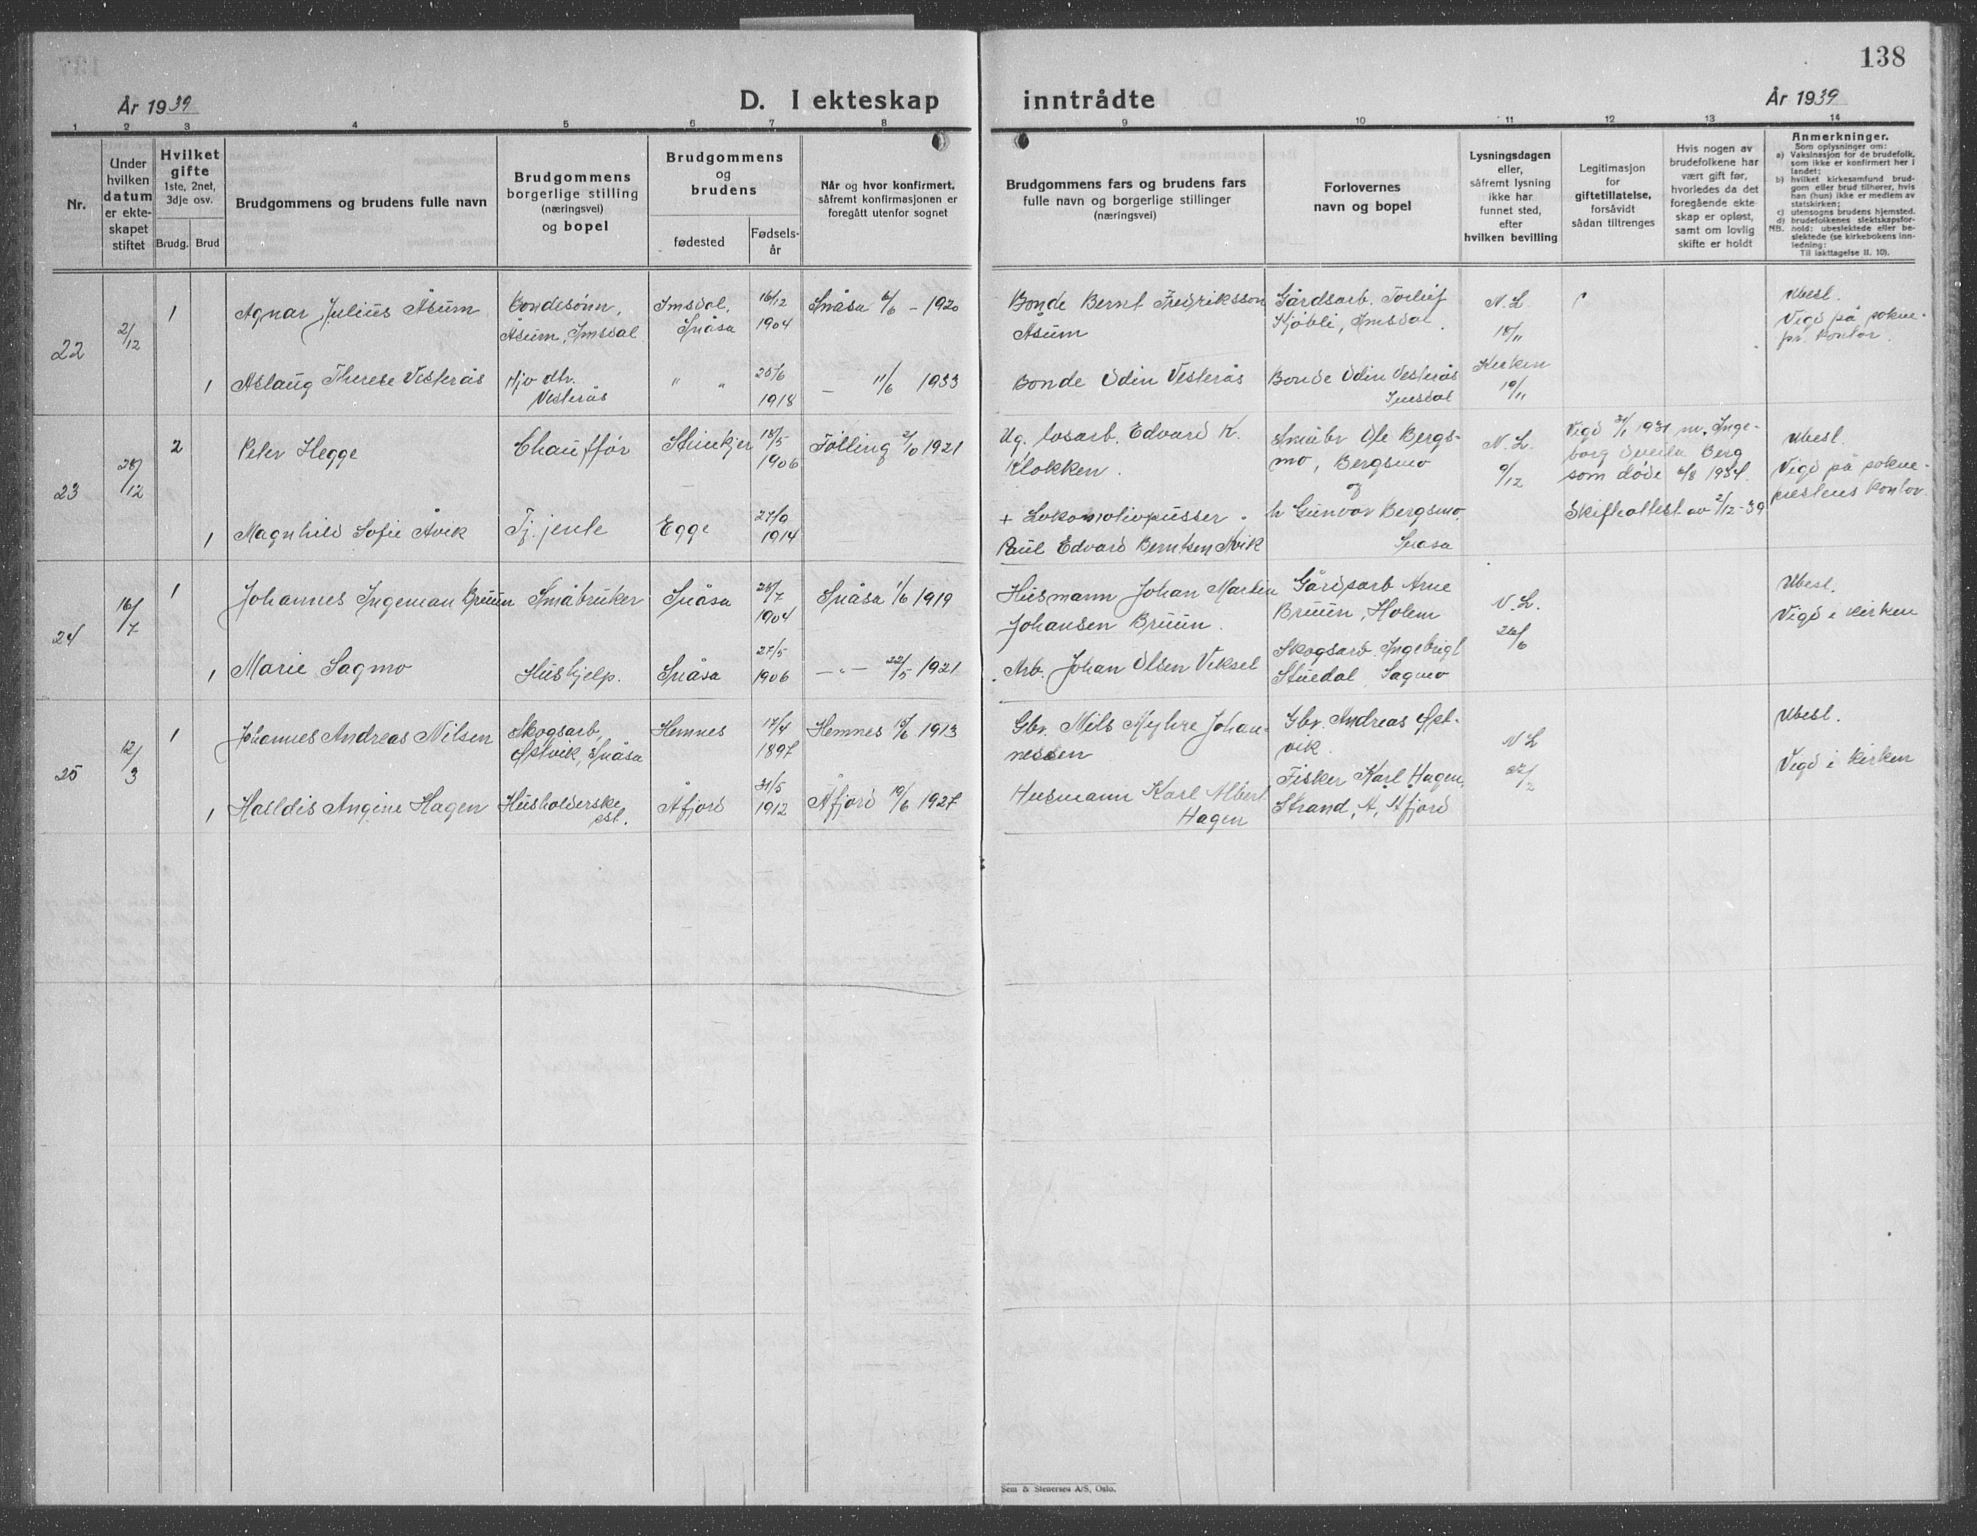 138
År 1939
D. I ekteskap inntrådte
År 1939
1 2 3 4 5 6 7 8 9 10 11 12 13 14
Nr.
Under
hvilken
datum
er ekte-
skapet
stiftet
Hvilket
gifte
1ste, 2net,
3dje osv.
Brudg. Brud
Brudgommens og brudens fulle navn
Brudgommens
borgerlige stilling
(næringsvei)
og bopel
Brudgommens
og
brudens
fødested
Fødsels-
år
Når og hvor konfirmert,
såfremt konfirmasjonen er
foregått utenfor sognet
Brudgommens fars og brudens fars
fulle navn og borgerlige stillinger
(næringsvei)
Forlovernes
navn og bopel
Lysningsdagen
eller,
såfremt lysning
ikke har
funnet sted,
efter
hvilken bevilling
Legitimasjon
for
giftetillatelse,
forsåvidt
sådan tiltrenges
Hvis nogen av
brudefolkene har
vært gift før,
hvorledes da det
foregående ekte
skap er opløst,
samt om lovlig
skifte er holdt
Anmerkninger.
Som oplysninger om:
a) Vaksinasjon for de brudefolk,
som ikke er konfirmert her i
landet;
b) hvilket kirkesamfund brud-
gom eller brud tilhører, hvis
han (hun) ikke er medlem av
statskirken;
c) utensogns brudens hjemsted.
d) brudefolkenes slektskapsfor-
NB. hold: ubeslektede eller be-
slektede (se kirkebokens inn-
ledning:
Til iakttagelse II. 10).
22
2/12
1
Agnar Julius Åsum
Bondesønn,
Åsum, Imsdal
Imsdal,
Snåsa
16/12
1904
Snåsa 6/6 - 1920
Bonde Bernt Fredriksson
Åsum
Gårdsarb. Torleif
Kjøbli, Imsdal.
N. L.
18/11
Ubesl.
Vigd på sokne-
pr. kontor.
1
Aslaug Therese Vesterås
Hjv. dtr.
Vesterås
" "
25/6
1918
— 11/6 1933
Bonde Odin Vesterås
Bonde Odin Vesterås
Imsdal
Kirken
19/11
23
28/12
2
Peter Hegge
Chauffør
Steinkjer
18/5
1906
Følling 2/10 1921
Ug. losarb. Edvard K.
Klokken.
Småbr Ole Bergs-
mo, Bergsmo
og
N. L.
9/12
Vigd 31/1 1931 m. Inge-
borg Sveila Berg
som døde 6/8 1934.
Skifteattest av 2/12-39
Ubesl.
Vigd på sokne-
prestens kontor.
1
Magnhild Sofie Åvik
Tj. jente
Egge
27/9
1914
+ Lokomotivpusser.
Paul Edvard Berntsen Åvik
h Gunvor Bergsmo,
Snåsa
24
16/7
1
Johannes Ingeman Bruun
Småbruker
Snåsa
28/7
1904
Snåsa 1/6 1919
Husmann Johan Martin
Johansen Bruun.
Gårdsarb Arne
Bruun, Holem
N. L.
26/6
Ubesl.
Vigd i kirken
1
Marie Sagmo
Hushjelp.
Snåsa
27/5
1906
—"— 22/5 1921
Arb. Johan Olsen Veksel
Skogsarb. Ingebrigt
Stuedal, Sagmo
25
12/3
1
Johannes Andreas Nilsen
Skogsarb,
Østvik, Snåsa
Hemnes
17/4
1897
Hemnes 15/6 1913
Gbr. Nils Myhre Johan-
nessen
Gbr. Andreas Øst-
vik.
N L
27/2
Ubesl.
Vigd i kirken
1
Halldis Angine Hagen
Husholderske
Åfjord
31/5
1912
Åfjord 19/6 1927
Husmann Karl Albert
Hagen
Fisker Karl Hagen,
Strand, A, Åfjord
Sem & Stenersen A/S, Oslo.